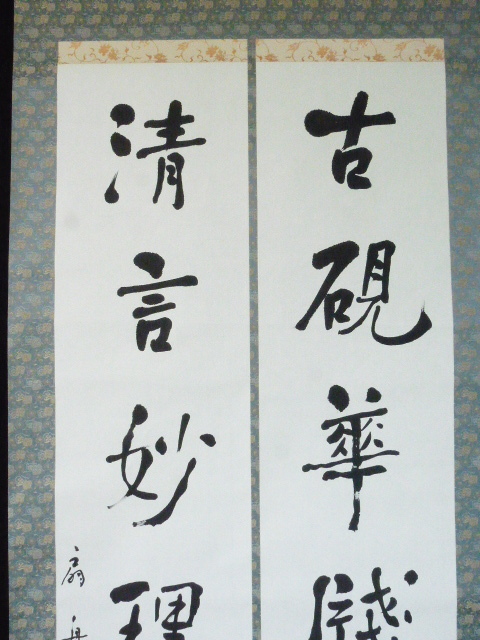 古硯華牋
清言妙理
扇舟